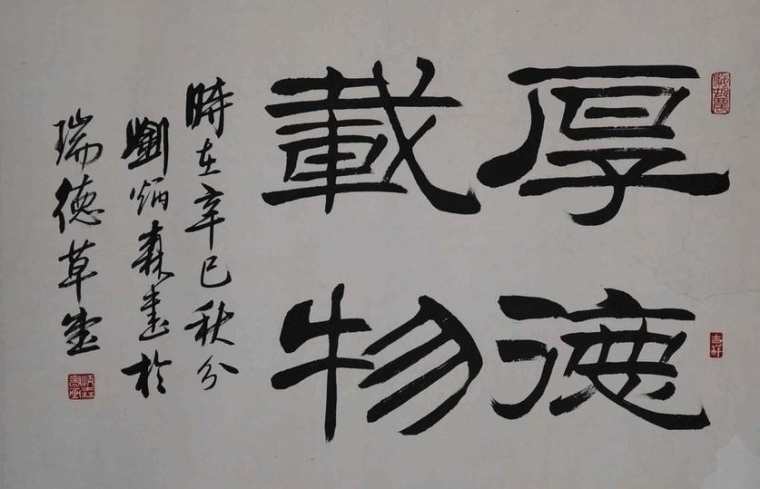 厚德
載物
時在辛巳秋分
劉炳森書於
瑞德草堂